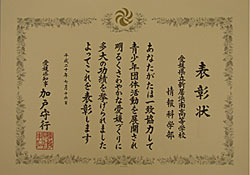 表彰状
愛媛県立新居浜南高等学校
情報科学部
あなたがたは一致協力して
青少年団体活動を展開され
明るくさわやかな愛媛づくりに
多大の功績を挙げられました
よってこれを表彰します
愛媛県知事 加戸守行